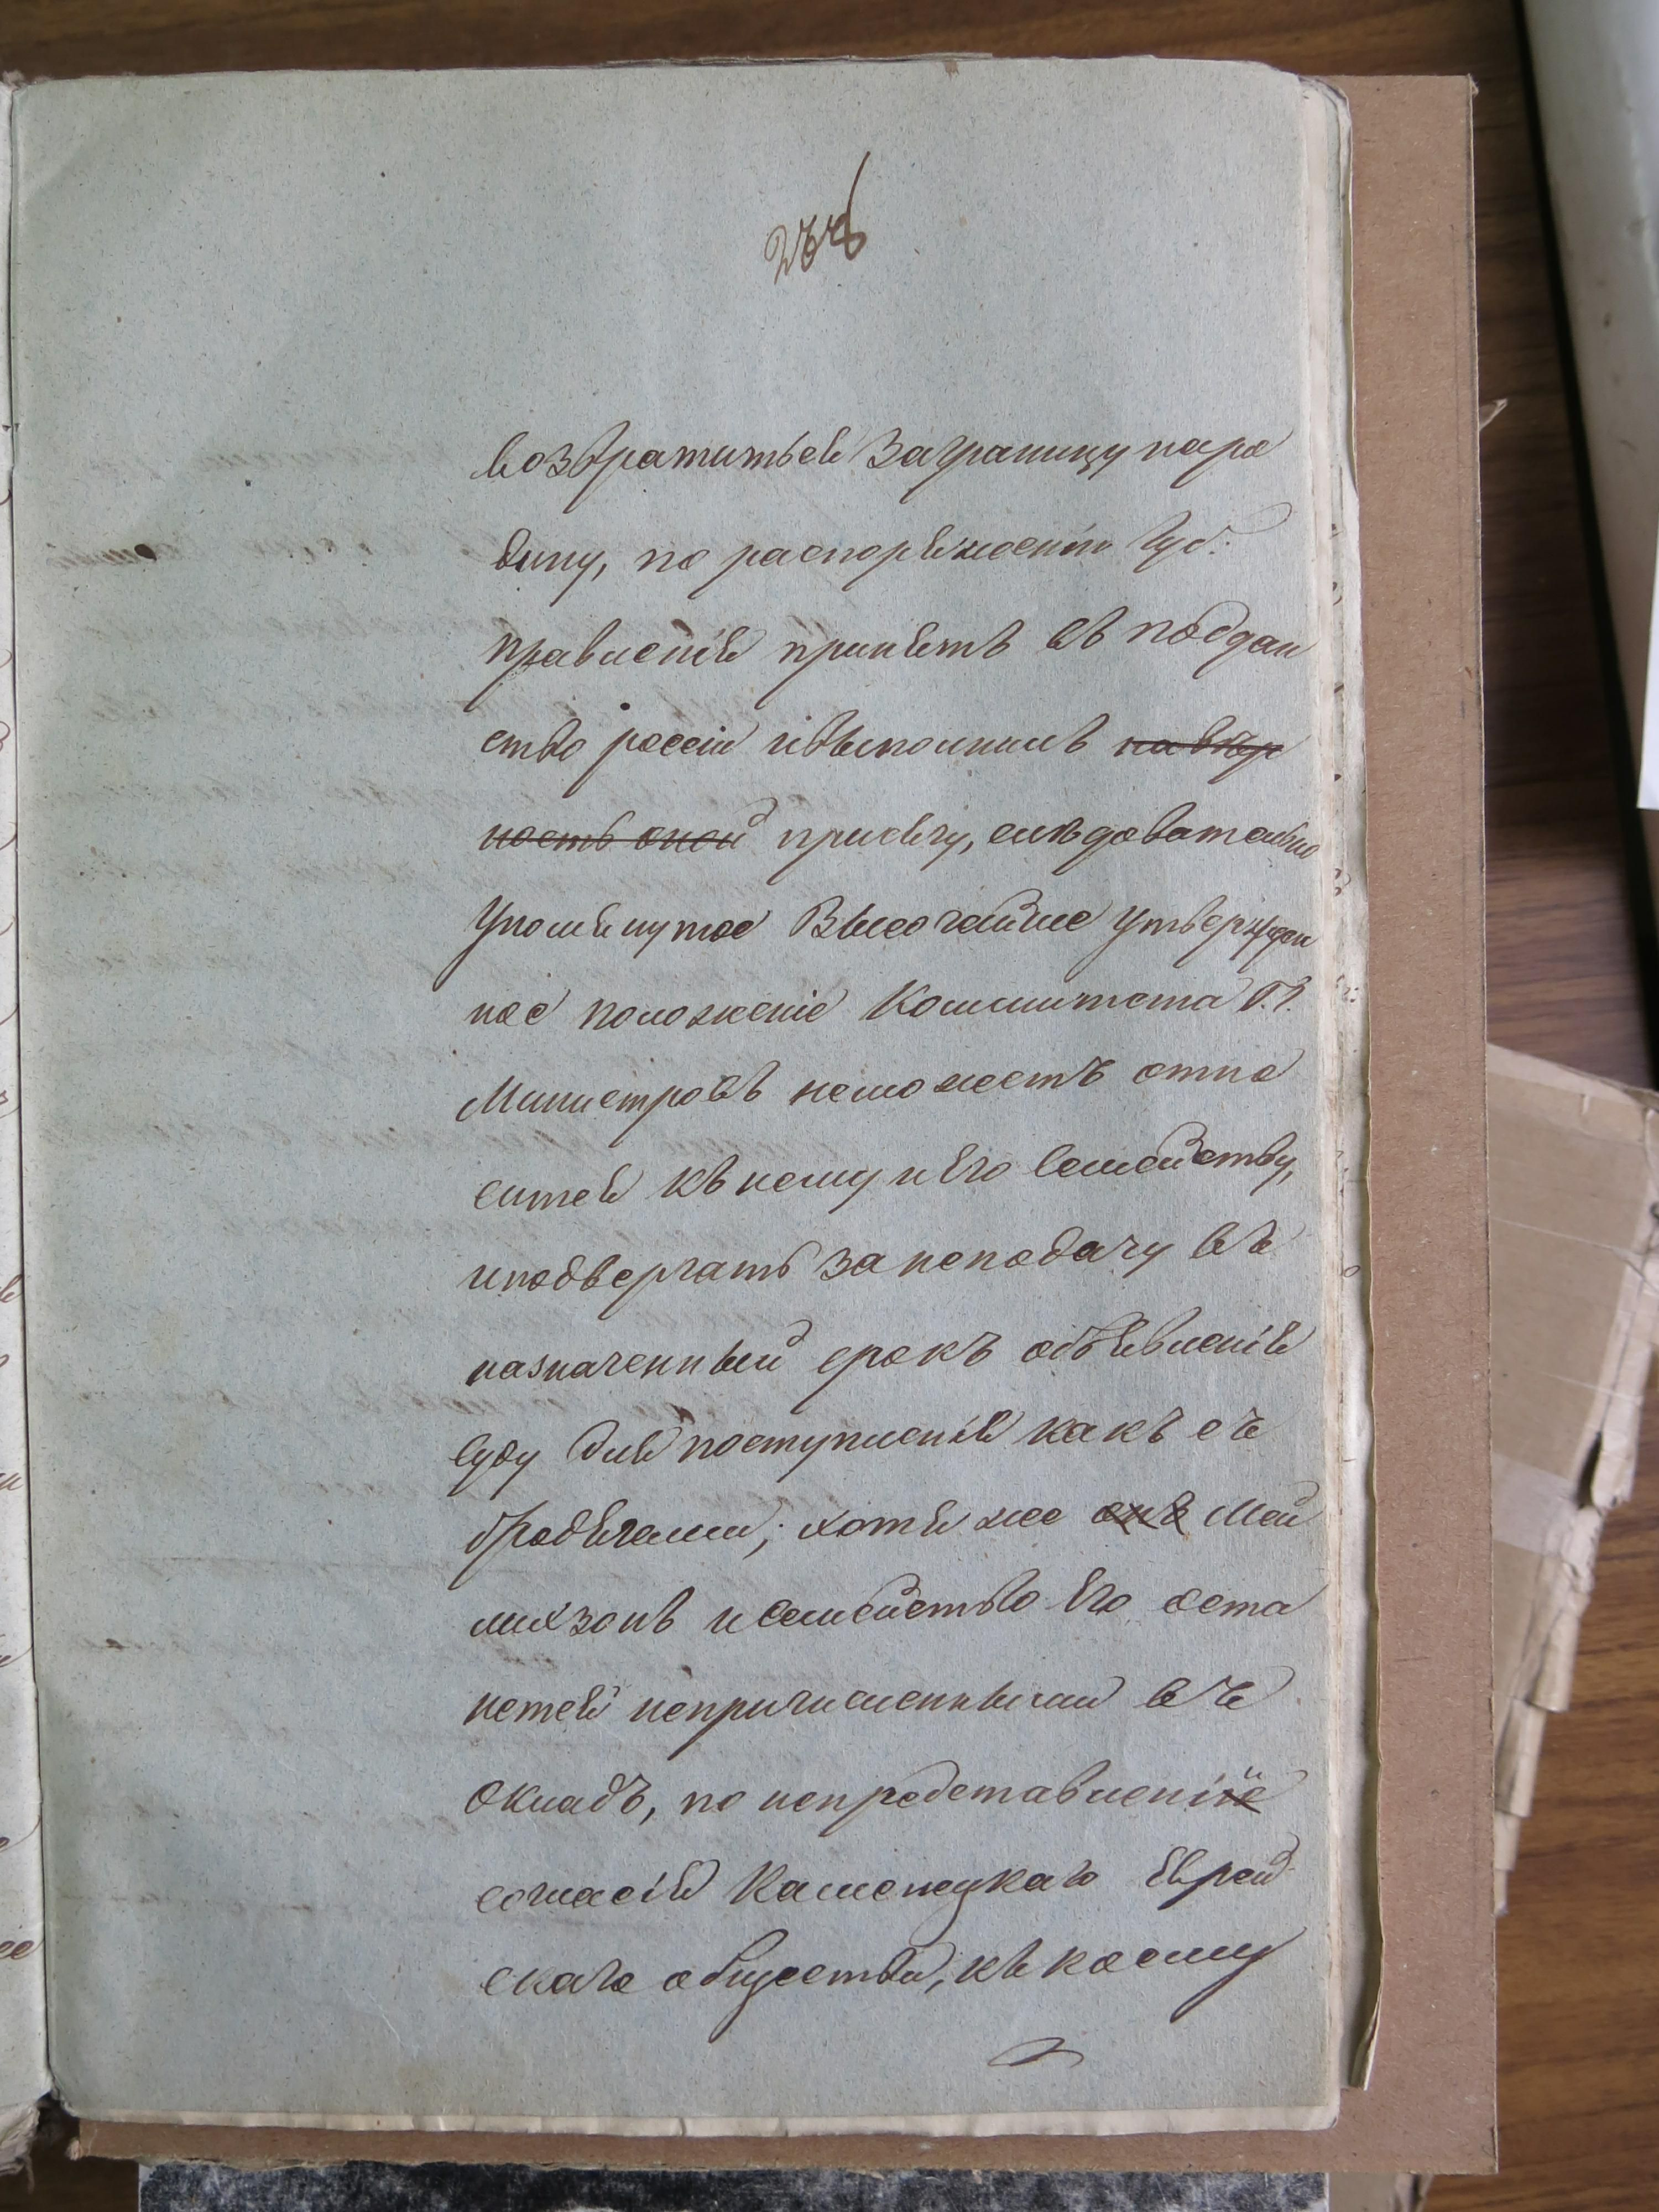 возвратиться заграницу наро
дину, по распоряженію Губ.
правленія принятъ въ поддан
ство россіи ивыполнилъ на вѣр
ность оной присягу, слѣдовательно
Упомянутое Высочайше Утвержден
ное положеніе Коммитета Г.Г.
Министровъ неможетъ отно
ситься къ нему и Его Семейству,
иподвергать за неподачу въ
назначенный срокъ объявленія
суду для поступленія какъ съ
бродягами; хотя же онъ Мей
лихзонъ и Семейство Его оста
нется непричисленными въ
Окладъ, по непредставленіи
согласія Каменецкаго Еврей
скаго общества, къ коему